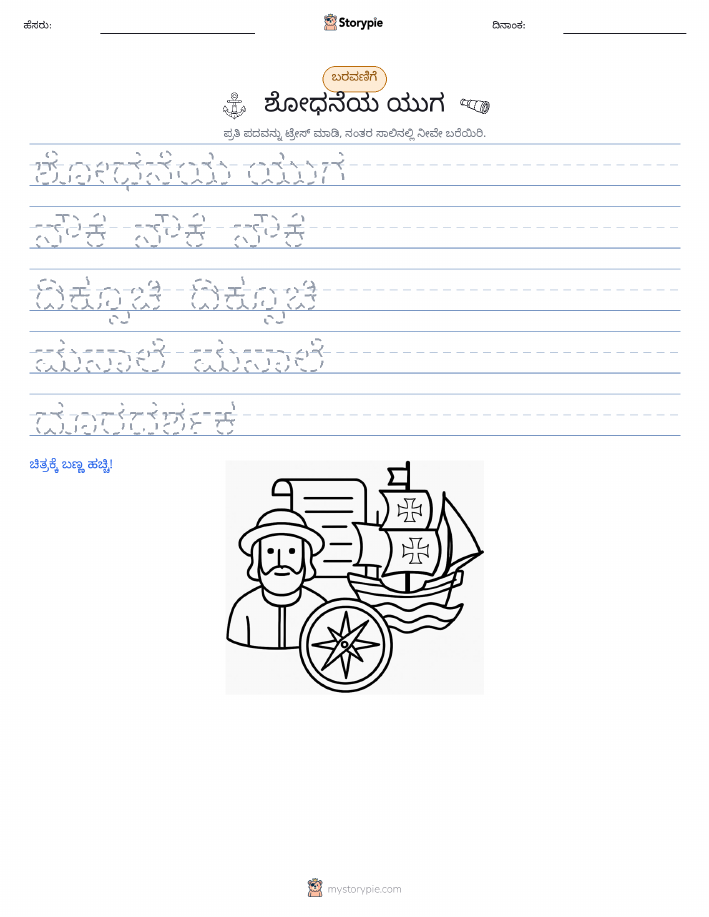 ಹೆಸರು:
Storypie
ದಿನಾಂಕ:
ಬರವಣಿಗೆ
ಶೋಧನೆಯ ಯುಗ
ಪ್ರತಿ ಪದವನ್ನು ಟ್ರೇಸ್ ಮಾಡಿ, ನಂತರ ಸಾಲಿನಲ್ಲಿ ನೀವೇ ಬರೆಯಿರಿ.
ಶೋಧನೆಯ ಯುಗ
ನೌಕೆ ನೌಕೆ ನೌಕೆ
ದಿಕ್ಸೂಚಿ ದಿಕ್ಸೂಚಿ
ಮಸಾಲೆ ಮಸಾಲೆ
ದೂರದರ್ಶಕ
ಚಿತ್ರಕ್ಕೆ ಬಣ್ಣ ಹಚ್ಚಿ!
mystorypie.com